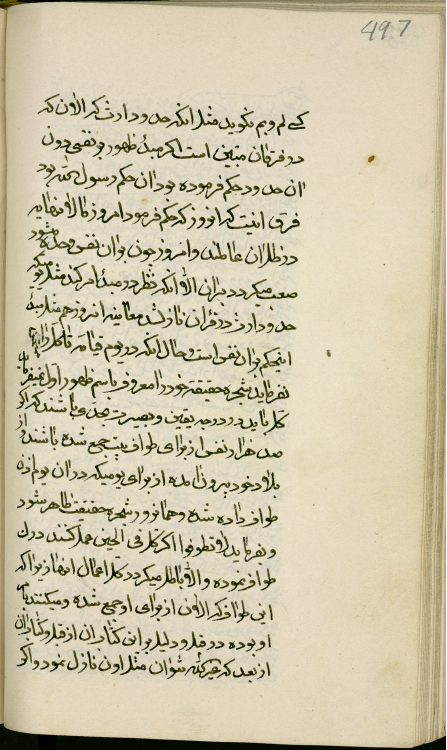 497
کسی لم و بم نگوید مثلا آنکه حدود ارث که الآن که
در فرقان مبین است اگر مبدء ظهور بر نفسی دون
ان حدود حکم فرموده بود ان حکم رسول الله بود
فرق اینست که انروز که حکم فرمود امروز مالا نهایه
در ظل ان عاملند و امروز چون بر ان نفس وحده میشود
صعب میگردد بر ان الا آنکه نظر در مبدء امر کند مثل یومیکه
حدود ارث در قران نازل شد معاینه امروز هم مثل مبدء
اینحکم بر ان نفس است و حال آنکه در یوم قیامة
نفرماید شجره حقیقة خود را معروف باسم ظهور اول
کل باید در درجه یقین و بصیرت باشند که اگر
صد هزار نفس از برای طواف بیت جمع شده باشند و از
بلاد خود بیرون امده از برای یومیکه در ان یوم اذن
طواف داده شده و همانروز شجره حقیقت ظاهر شود
و بفرماید لا تطوفوا اگر کل فی الحین عمل کنند درک
طواف نموده و الا باطل میگردد کل اعمال انها زیرا که
این طواف که الآن از برای او جمع شده و میکنند بامر
او بوده در قبل و دلیل بر این کتاب ان از قبل و کتاب ان
از بعد که غیر الله نتوان مثل اون نازل نمود و اگر